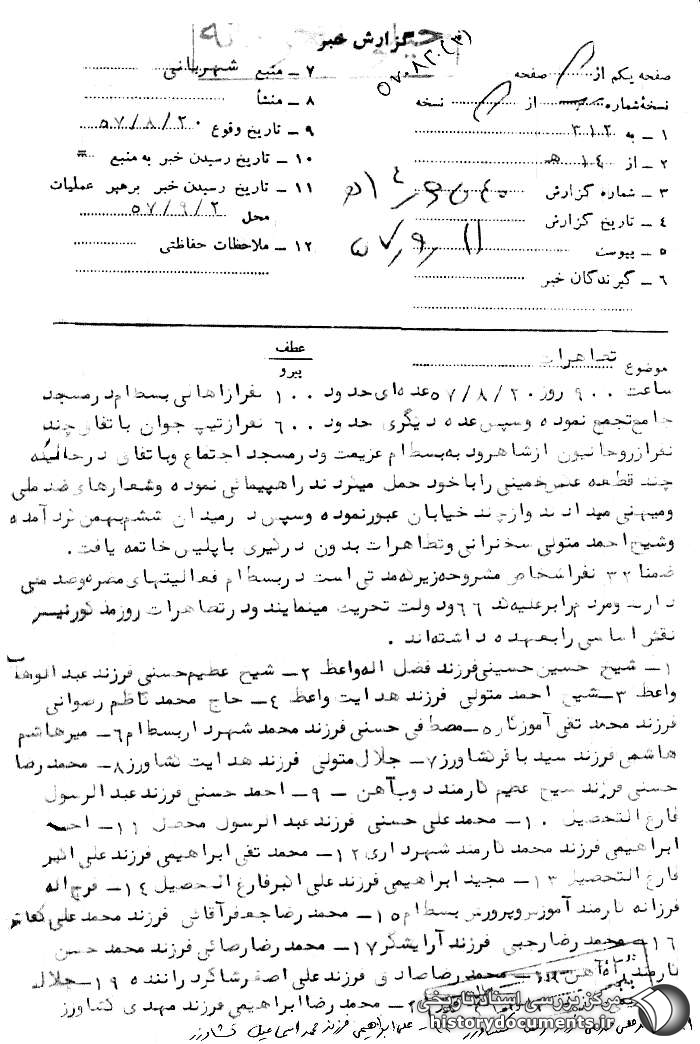 گزارش خبر
(۳) ۵۷۰۸۲۰
صفحه یکم از صفحه
نسخهٔ شماره از نسخه
۱ ـ به ۳۱۲
۲ ـ از ۱۴ هـ
۳ ـ شماره گزارش
۴ ـ تاریخ گزارش
۵ ـ پیوست
۶ ـ گیرندگان خبر
۷ ـ منبع شهربانی
۸ ـ منشأ
۹ ـ تاریخ وقوع ۵۷/۸/۲۰
۱۰ ـ تاریخ رسیدن خبر به منبع
۱۱ ـ تاریخ رسیدن خبر برهبر عملیات
محل ۵۷/۹/۲
۱۲ ـ ملاحظات حفاظتی
عطف
پیرو
موضوع تظاهرات
ساعت ۹۰۰ روز ۵۷/۸/۲۰ عده‌ای حدود ۱۰۰ نفر از اهالی بسطام در مسجد
جامع تجمع نموده و سپس عده دیگری حدود ۶۰۰ نفر از تیپ جوان باتفاق چند
نفر از روحانیون از شاهرود به بسطام عزیمت و در مسجد اجتماع و باتفاق در حالیکه
چند قطعه عکس خمینی را با خود حمل میکردند راهپیمائی نموده و شعارهای ضد ملی
و میهنی میدادند و از چند خیابان عبور نموده و سپس در میدان ششم بهمن گرد آمده
و شیخ احمد متولی سخنرانی و تظاهرات بدون درگیری با پلیس خاتمه یافت .
ضمنا ۲۲ نفر اشخاص مشروحه زیر که مدتی است در بسطام فعالیتهای مضره و ضد ملی
دارند و مردم را بر علیه ۶۶ و دولت تحریک مینمایند و در تظاهرات روز مذکور نیز
نقش اساسی را بعهده داشته‌اند .
۱ـ شیخ حسین حسینی فرزند فضل اله واعظ ۲ـ شیخ عظیم حسنی فرزند عبدالوهاب
واعظ ۳ـ شیخ احمد متولی فرزند هدایت واعظ ۴ـ حاج محمد کاظم رضوانی
فرزند محمد تقی آموزگار ۵ـ مصطفی حسنی فرزند محمد شهردار بسطام ۶ـ میرهاشم
هاشمی فرزند سید باقر کشاورز ۷ـ جلال متولی فرزند هدایت کشاورز ۸ـ محمد رضا
حسنی فرزند شیخ عظیم کارمند ذوب‌آهن ـ ۹ـ احمد حسنی فرزند عبدالرسول
فارغ التحصیل ۱۰ـ محمد علی حسنی فرزند عبدالرسول محصل ۱۱ـ احمد
ابراهیمی فرزند محمد کارمند شهرداری ۱۲ـ محمد تقی ابراهیمی فرزند علی اکبر
فارغ التحصیل ۱۳ـ مجید ابراهیمی فرزند علی اکبر فارغ التحصیل ۱۴ـ فرج اله
فرزانه کارمند آموزش و پرورش بسطام ۱۵ـ محمد رضا جعفر آقائی فرزند محمد علی
۱۶ـ محمد رضا رجبی فرزند آرایشگر ۱۷ـ محمد رضا رضائی فرزند محمد حسن
کارمند راه آهن ۱۸ـ محمد رضا صادقی فرزند علی اصغر شاگرد راننده ۱۹ـ جلال
محمد رضا ابراهیمی فرزند مهدی کشاورز
علی ابراهیمی فرزند محمد اسماعیل کشاورز
مرکز بررسی اسناد تاریخی
historydocuments.ir